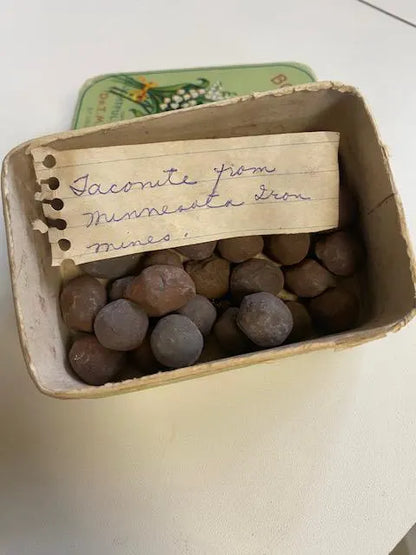 Taconite from
Minnesota Iron
mines.